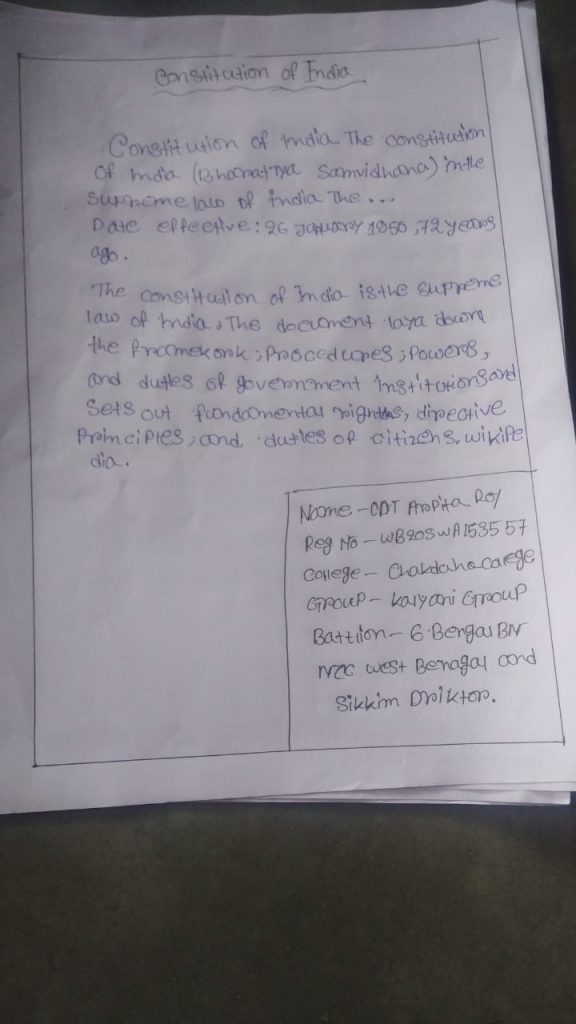 Constitution of India
Constitution of India The constitution
Of India (Bhoarattya Saamvidhana) inthe
supreme law of india The...
Date effective: 26 January 1950, 72 years
ago.
The constitution of India isthe supreme
law of India, The document laya down
the framekork, Procedures, Powers,
and duties of government institutionsand
Sets out fundamental rightns, directive
Principles, and duties of citizens. wikipe
dia.
Name - CDT Arpita Roy
Reg No - WB20SWA153557
College - Chakdaha carege
Group - Kalyani Group
Battiion - 6 Bengal BN
NCC West Benagal and
Sikkim Driktor.